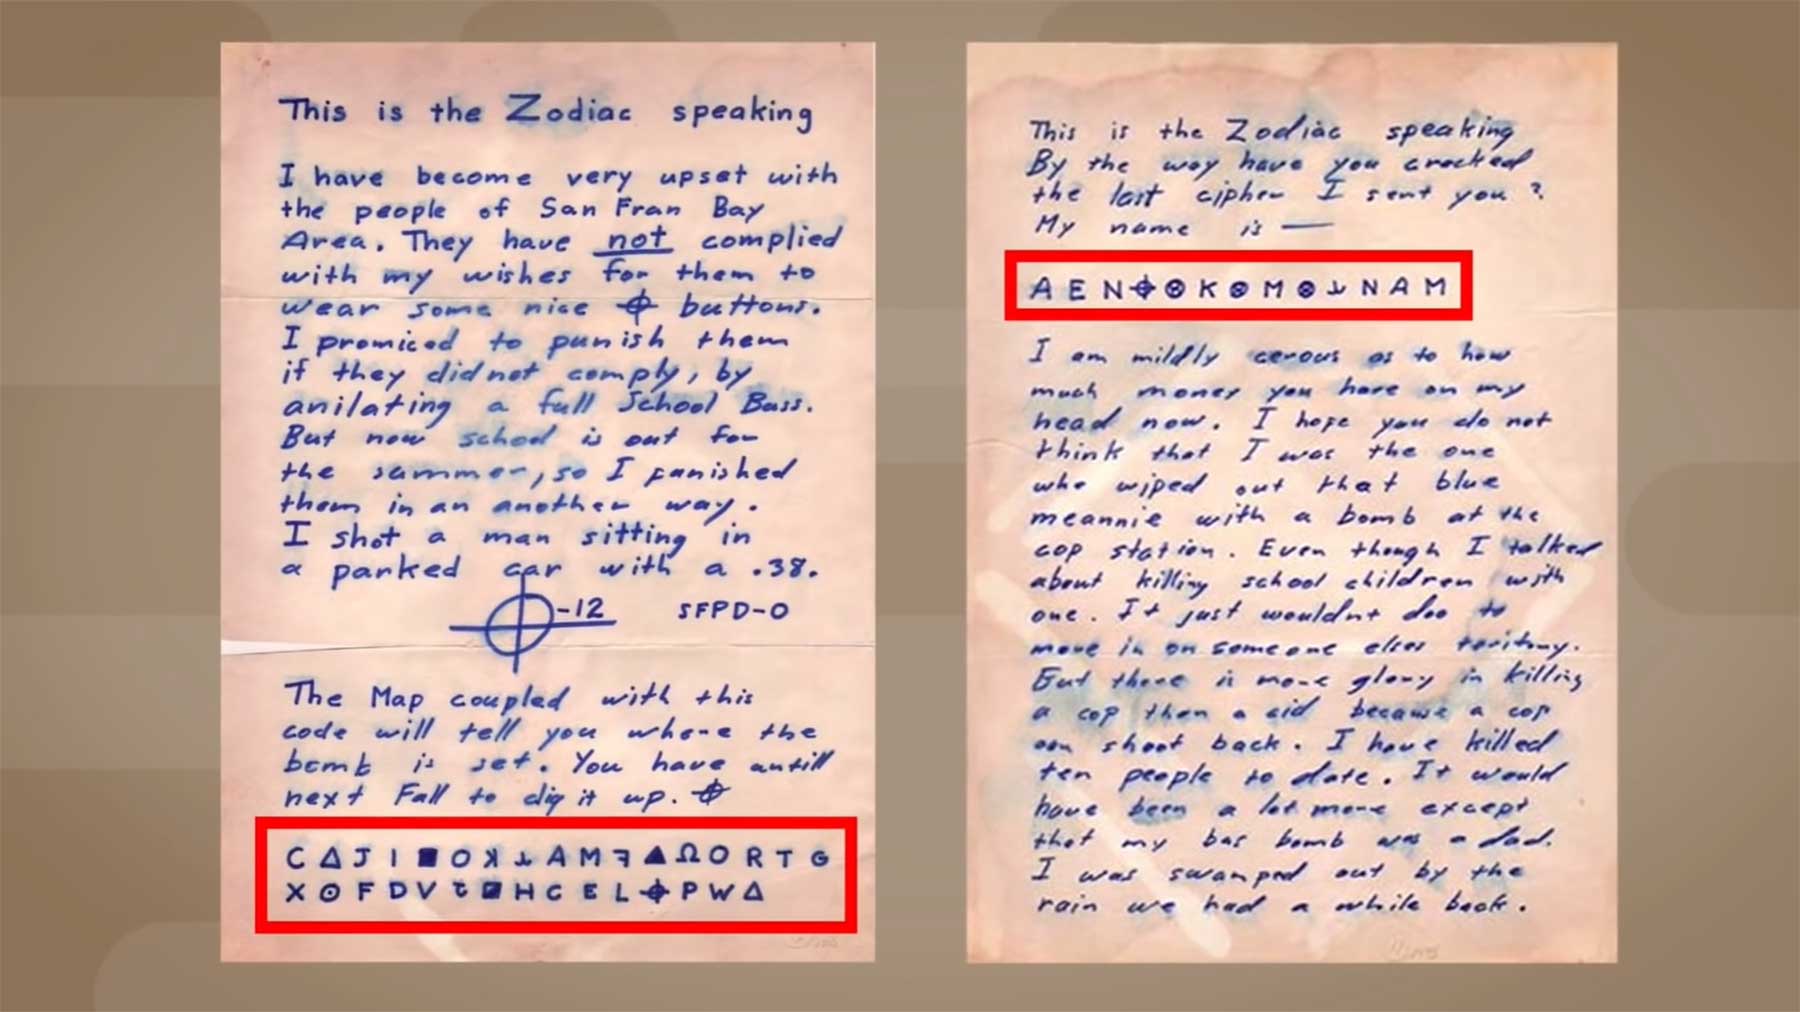 This is the Zodiac speaking
I have become very upset with
the people of San Fran Bay
Area. They have not complied
with my wishes for them to
wear some nice ⌖ buttons.
I promiced to punish them
if they did not comply, by
anilating a full School Buss.
But now school is out for
the summer, so I punished
them in an another way.
I shot a man sitting in
a parked car with a .38.
⌖-12 SFPD-0
The Map coupled with this
code will tell you where the
bomb is set. You have untill
next Fall to dig it up. ⌖
C Δ J I ■ O ꓘ ⅄ A M ꟻ ▲ Ω O R T G
X ⊙ F D V Ɛ ◪ H C E L ⌖ P W Δ
This is the Zodiac speaking
By the way have you cracked
the last cipher I sent you?
My name is —
A E N ⌖ ⊗ K ⊗ M ⊗ ⅄ N A M
I am mildly cerous as to how
much money you have on my
head now. I hope you do not
think that I was the one
who wiped out that blue
meannie with a bomb at the
cop station. Even though I talked
about killing school children with
one. It just wouldnt doo to
move in on someone elses teritory.
But there is more glory in killing
a cop than a cid because a cop
can shoot back. I have killed
ten people to date. It would
have been a lot more except
that my bus bomb was a dud.
I was swamped out by the
rain we had a while back.